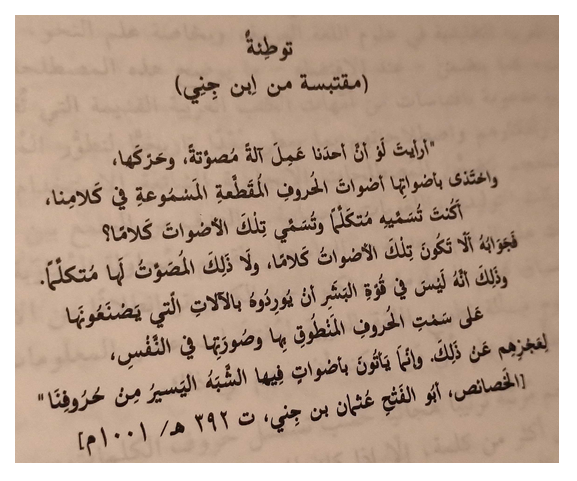 توطِئةٌ
(مقتبسة من اِبن جِنِي)
"أرأيتَ لَوْ أنَّ أحدَنا عَمِلَ آلةً مُصوِّتةً، وحَرّكَها،
واحتَذى بأصْواتِها أصْواتَ الحُروفِ المُقَطّعةِ المَسْمُوعةِ في كَلامِنا،
أكُنتَ تُسَمّيهِ مُتكَلِّمًا وتُسَمّي تِلْكَ الأصْواتَ كَلامًا؟
فَجَوابُهُ ألّا تَكُونَ تِلْكَ الأصْواتُ كَلامًا، ولَا ذَلِكَ المُصَوِّتُ لَها مُتكلِّمًا.
وذَلِكَ أنَّهُ لَيْسَ في قُوّةِ البَشَرِ أنْ يُورِدُوهُ بالآلاتِ الّتي يَصْنَعُونَها
عَلى سَمْتِ الحُروفِ المَنْطُوقِ بِها وصُورَتِها في النَّفْسِ،
لِعَجْزِهِم عَنْ ذَلِكَ. وانّما يَأتُونَ بأصْواتٍ فِيها الشَّبَهُ اليَسيرُ مِنْ حُرُوفِنَا"
[الخَصائص، أبُو الفَتْحِ عُثمان بن جِني، ت ٣٩٢ هـ/ ١٠٠١م]